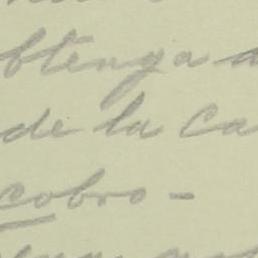 btenga a
de la Ca
cobro -